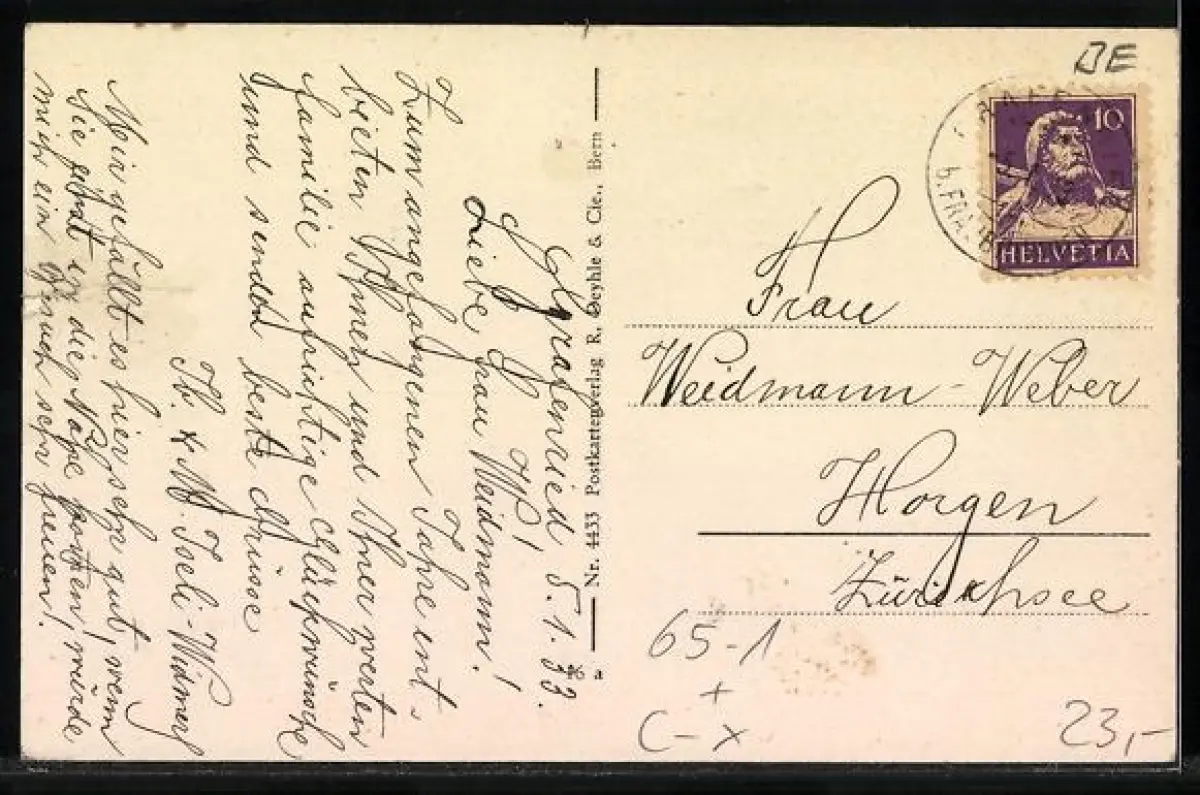 Grafenried 5.1.33.
Liebe Frau Weidmann!
Zum angefangenen Jahre ent-
bieten Ihnen und Ihrer werten
Familie aufrichtige Glückwünsche
und senden beste Grüsse
Fb. & M. Iseli-Widmer
Mir gefällt es hier sehr gut, wenn
Sie in die Nähe würde
mich ein Besuch sehr freuen!
Nr. 4433 Postkartenverlag R. Deyhle & Cie., Bern
a
BE
10
HELVETIA
b. FRAUB
Frau
Weidmann-Weber
Horgen
Zürichsee
65-1
+
C-x
23,-